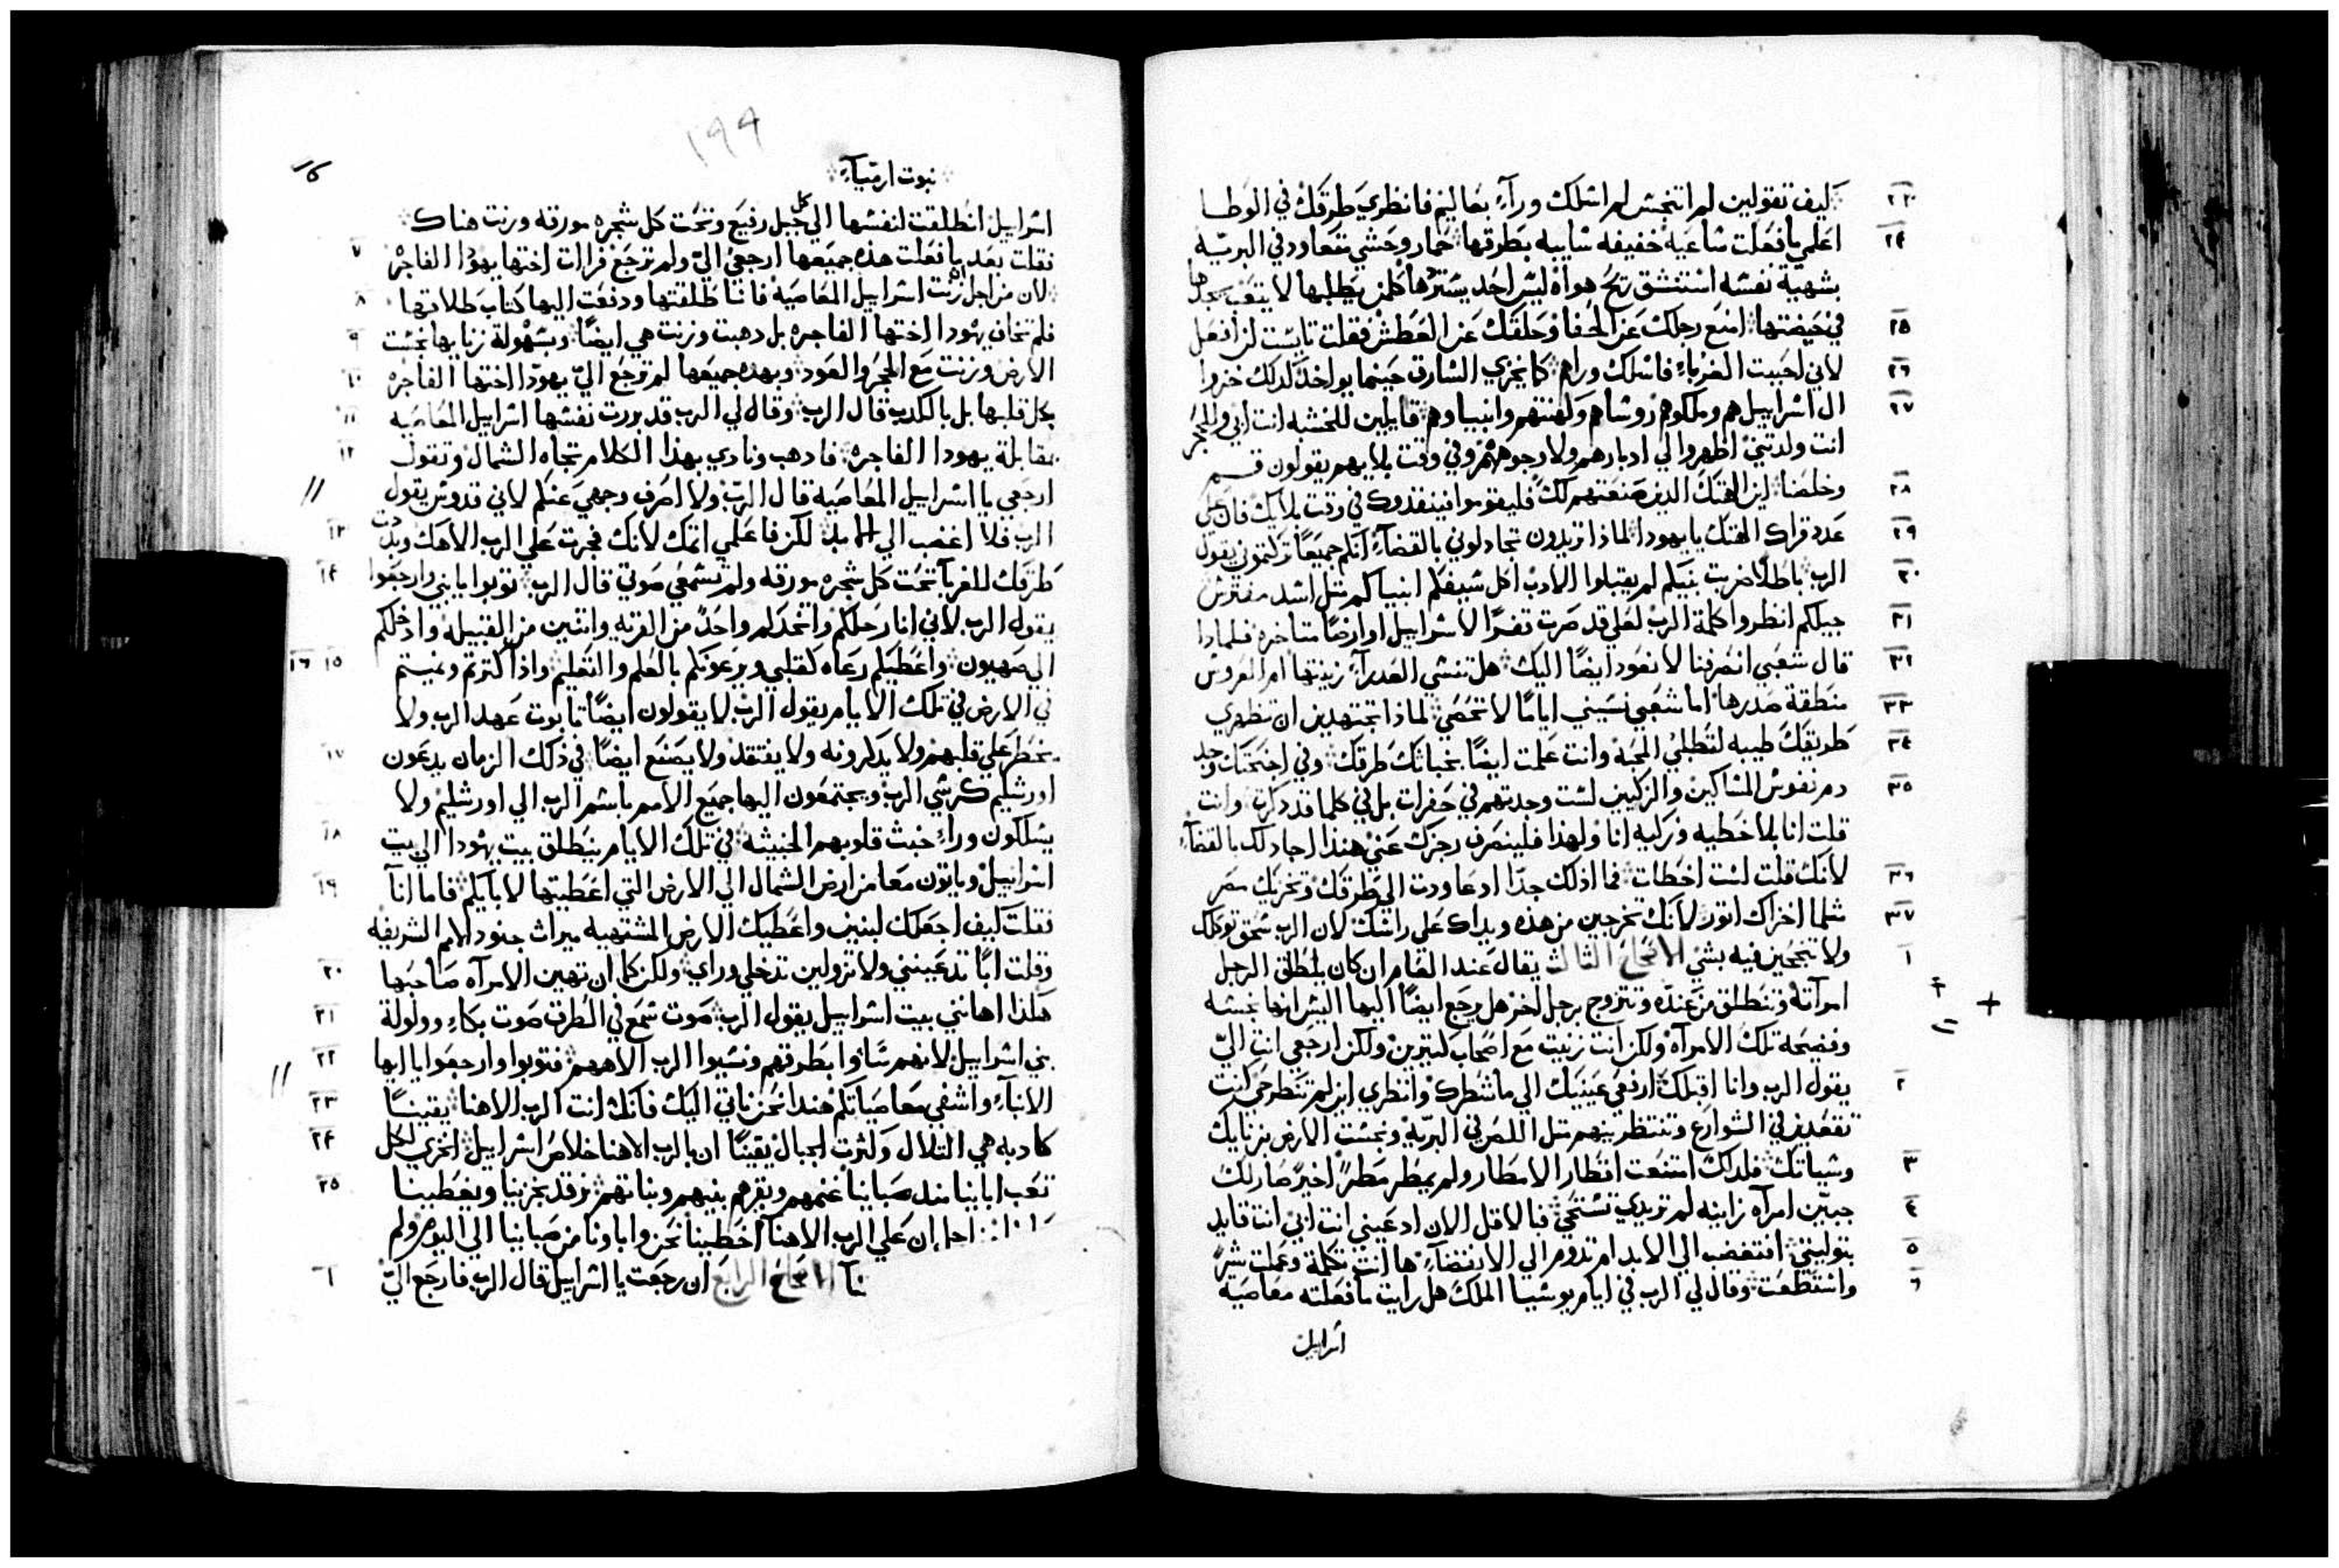 ٢٣ كيف تقولين لم اتنجس لم اسلك ورآء بعاليم فانظري طرقك في الوطا
٢٤ اعلمي ما فعلت ساعيه خفيفه سايبه بطرقها حمار وحشي متعاود في البريه
بشهية نفسه استنشق ريح هواه ليس احد يستردها كلمن يطلبها لا يتعب يجدها
٢٥ في حيضتها امنع رجلك عن الحفا وحلقك عن العطش فقلت تايست لن افعل
٢٦ لاني احببت الغرباء فاسلك وراهم كما يخزي السارق حينما يواخذ كدلك خزوا
٢٧ ال اسراييل هم وملكوهم روساهم وكهنتهم وانبياوهم قايلين للخشبه انت ابي وللحجر
انت ولدتني اظهروا لي ادبارهم ولا وجوههم وفي وقت بلايهم يقولون قم
٢٨ وخلصنا اين الهتك الدين صنعتهم لك فليقوموا فينقدوك في وقت بلايك فان علي
٢٩ عدد قراك الهتك يا يهودا لماذا تريدون تجادلوني بالقضآء انكم جميعا تركتموني يقول
٣٠ الرب باطلا ضربت بنيكم لم يقبلوا الادب اكل سيفكم انبياكم متل اسد مفترس
٣١ جيلكم انظروا كلمة الرب لعلي قد صرت قفرا لاسراييل او ارضا متاخره فلمادا
٣٢ قال شعبي انصرفنا لا نعود ايضا اليك هل تنسي العدرآء زينتها ام العروس
٣٣ منطقة صدرها اما شعبي نسيني اياما لا تحصي لماذا تجتهدين ان تظهري
٣٤ طريقك طيبه لتطلبي المحبه وانت علمت ايضا بخباثتك طرقك وفي اجنحتك وجد
٣٥ دم نفوس المساكين والزكيين لست وجدتهم في حفرات بل في كلما قد دكرت وانت
قلت انا بلا خطيه وزكيه انا ولهذا فلينصرف رجزك عني هندا احادلك بالقضآء
٣٦ لانك قلت لست اخطات فما ادلك جدا ادعاودت الي طرقك وتخزيك مصر
٣٧ متلما اخزاك اتور لانك تخرجين من هذه ويداك علي راسك لان الرب سحق توكلك
١ ولا تنجحين فيه بشي الاصحاح الثالث يقال عند العام ان كان يطلق الرجل
امرآته وتنطلق من عنده وتتزوج برجل اخر هل يرجع ايضا اليها اليس انها نجسه
وفضيحه تلك الامرآه ولكن انت زنيت مع اصحاب كتيرين ولكن ارجعي انت الي
٢ يقول الرب وانا اقبلك ارفعي عينيك الي ما شطرك وانظري اين لم تنطرحي كنت
تقعدين في الشوارع وتنتظرينهم متل اللص في البريه ونجست الارض بزنايك
٣ وسياتك فلدلك امتنعت اقطار الامطار ولم يمطر مطرا اخيرا صار لك
٤ جبين امرآه زانيه لم تريدي تستحي فبالاقل الان ادعيني انت ابي انت قايد
٥ بتوليتي افتغضب الي الابد ام تدوم الي الانقضآء ها انت تكلمة وعملت شرا
٦ واستطعت وقال لي الرب في ايام يوسيا الملك هل رايت ما فعلته معاصيه
اسراييل
١٩٩
نبوت ارميآء
اسراييل انطلقت لنفسها الي كل جبل رفيع وتحت كل شجره مورقه وزنت هناك
٧ فقلت بعد ما فعلت هذه جميعها ارجعي الي ولم ترجع فرات اختها يهودا الفاجره
٨ لان من اجل زنت اسراييل المعاصيه فانا طلقتها ودفعت اليها كتاب طلاقها
٩ فلم تخاف يهودا اختها الفاجره بل دهبت وزنت هي ايضا وبسهولة زنايها نجست
١٠ الارض وزنت مع الحجر والعود وبهده جميعها لم ترجع الي يهودا اختها الفاجره
١١ بكل قلبها بل بالكدب قال الرب وقال لي الرب قد بررت نفسها اسراييل المعاصيه
١٢ بمقابلة يهودا الفاجره فادهب ونادي بهذا الكلام تجاه الشمال وتقول
ارجعي يا اسراييل المعاصيه قال الرب ولا اصرف وجهي عنكم لاني قدوس يقول
١٣ الرب فلا اغضب الي الابد لكن فاعلمي اتمك لانك فجرت علي الرب الاهك وبددت
١٤ طرقك للغربآء تحت كل شجره مورقه ولم تسمعي صوتي قال الرب توبوا يا بني وارجعوا
يقول الرب لاني انا رجلكم واتخدكم واحدا من القريه واتنين من القبيله وادخلكم
١٥ ١٦ الي صهيون واعطيكم رعاه كقلبي ويرعونكم بالعلم والتعليم واذا كترتم ونميتم
في الارض في تلك الايام يقول الرب لا يقولون ايضا تابوت عهد الرب ولا
١٧ يخطر علي قلبهم ولا يدكرونه ولا يفتقد ولا يصنع ايضا في ذلك الزمان يدعون
اورشليم كرسي الرب ويجتمعون اليها جميع الامم باسم الرب الي اورشليم ولا
١٨ يسلكون ورآء خبث قلوبهم الخبيثه في تلك الايام ينطلق بيت يهودا الي بيت
١٩ اسراييل وياتون معا من ارض الشمال الي الارض التي اعطيتها لابايكم فاما انآ
فقلت كيف اجعلك لبنين واعطيك الارض المشتهيه ميراث جنود الامم الشريفه
٢٠ وقلت ابا تدعينني ولا تزولين تدخلي وراي ولكن كما ان تهين الامرآه صاحبها
٢١ هكذا اهانني بيت اسراييل يقول الرب صوت سمع في الطرق صوت بكاء وولولة
٢٢ بني اسراييل لانهم بطرقهم ونسيوا الرب الاههم فتوبوا وارجعوا يا ايها
٢٣ الابنآء واشفي معاصياتكم هندا نحن ناتي اليك فانك انت الرب الاهنا يقينا
٢٤ كادبه هي التلال وكثرت الجبال يقينا ان بالرب الاهنا خلاص اسراييل الخزي اكل
٢٥ تعب ابايينا مند صباينا غنمهم وبقرهم بنيهم وبناتهم نرقد بخزينا ويغطينا
علي الرب الاهنا اخطينا نحن واباونا من صباينا الي اليوم ولم
١ الاصحاح الرابع ان رجعت يا اسراييل قال الرب فارجع الي